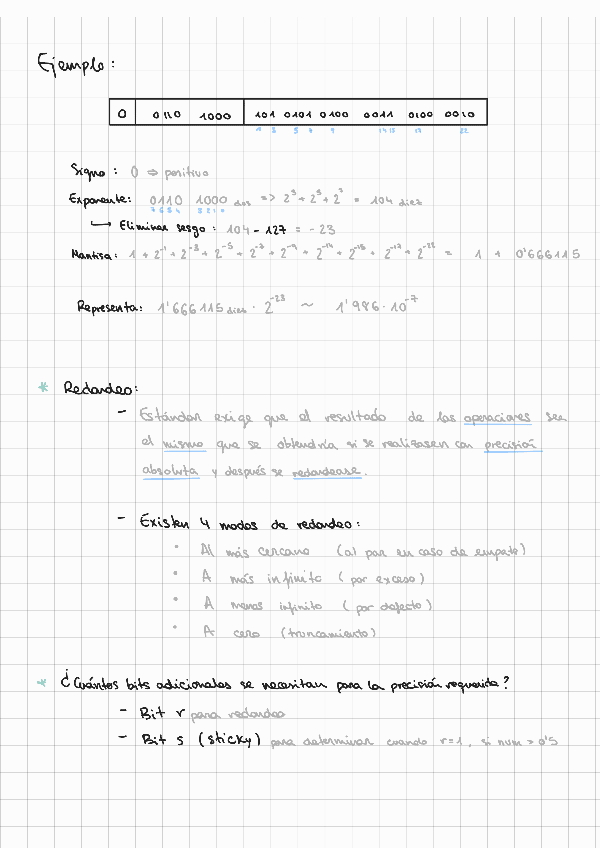 Ejemplo:
0 0110 1000 101 0101 0100 0011 0100 0010
1 3 5 7 9 14 15 17 22
Signo: 0 => positivo
Exponente: 0110 1000 dos => 2^6 + 2^5 + 2^3 = 104 diez
7 6 5 4 3 2 1 0
↳ Eliminar sesgo: 104 - 127 = -23
Mantisa: 1 + 2^-1 + 2^-3 + 2^-5 + 2^-7 + 2^-9 + 2^-14 + 2^-15 + 2^-17 + 2^-22 = 1 + 0'666115
Representa: 1'666115 diez · 2^-23 ~ 1'986 · 10^-7
* Redondeo:
- Estándar exige que el resultado de las operaciones sea
el mismo que se obtendría si se realizasen con precisión
absoluta y después se redondease.
- Existen 4 modos de redondeo:
• Al más cercano (al par en caso de empate)
• A más infinito (por exceso)
• A menos infinito (por defecto)
• A cero (truncamiento)
* ¿Cuántos bits adicionales se necesitan para la precisión requerida?
- Bit r para redondeo
- Bit s (sticky) para determinar cuando r=1, si num > 0'5